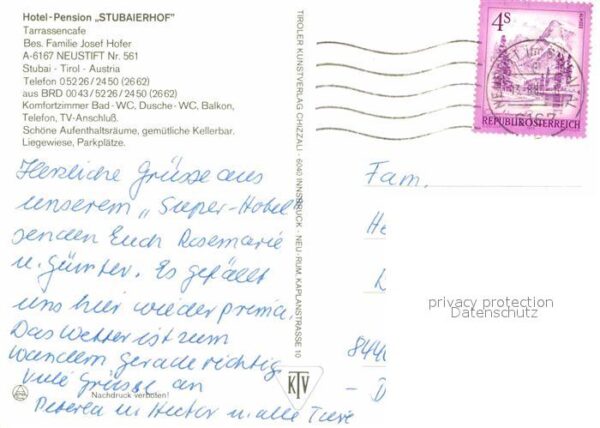 Hotel-Pension „STUBAIERHOF"
Tarrassencafe
Bes. Familie Josef Hofer
A-6167 NEUSTIFT Nr. 561
Stubai - Tirol - Austria
Telefon 05226/2450 (2662)
aus BRD 0043/5226/2450 (2662)
Komfortzimmer Bad-WC, Dusche-WC, Balkon,
Telefon, TV-Anschluß.
Schöne Aufenthaltsräume, gemütliche Kellerbar.
Liegewiese, Parkplätze.
Herzliche Grüsse aus
unserem „Super-Hotel"
senden Euch Rosemarie
u. Günter. Es gefällt
uns hier wieder prima.
Das Wetter ist zum
wandern gerade richtig.
Viele Grüsse an
u. Hector u. alle Tiere
Nachdruck verboten!
TIROLER KUNSTVERLAG CHIZZALI · 6040 INNSBRUCK · NEU-RUM, KAPLANSTRASSE 10
KTV
4S
REPUBLIK ÖSTERREICH
6167
Fam.
He
8440
- D
privacy protection
Datenschutz